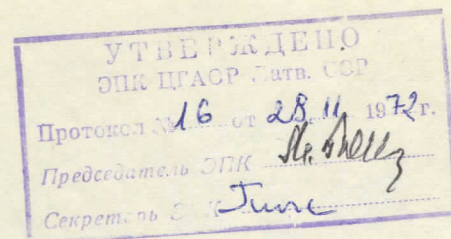 УТВЕРЖДЕНО
ЭПК ЦГАОР Латв. ССР
Протокол № 16 от 28.11 1972 г.
Председатель ЭПК
Секретарь ЭПК